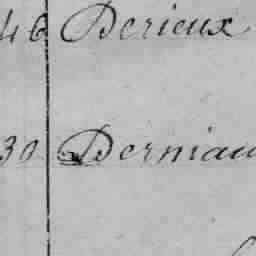 46 Derieux
30 Derniau